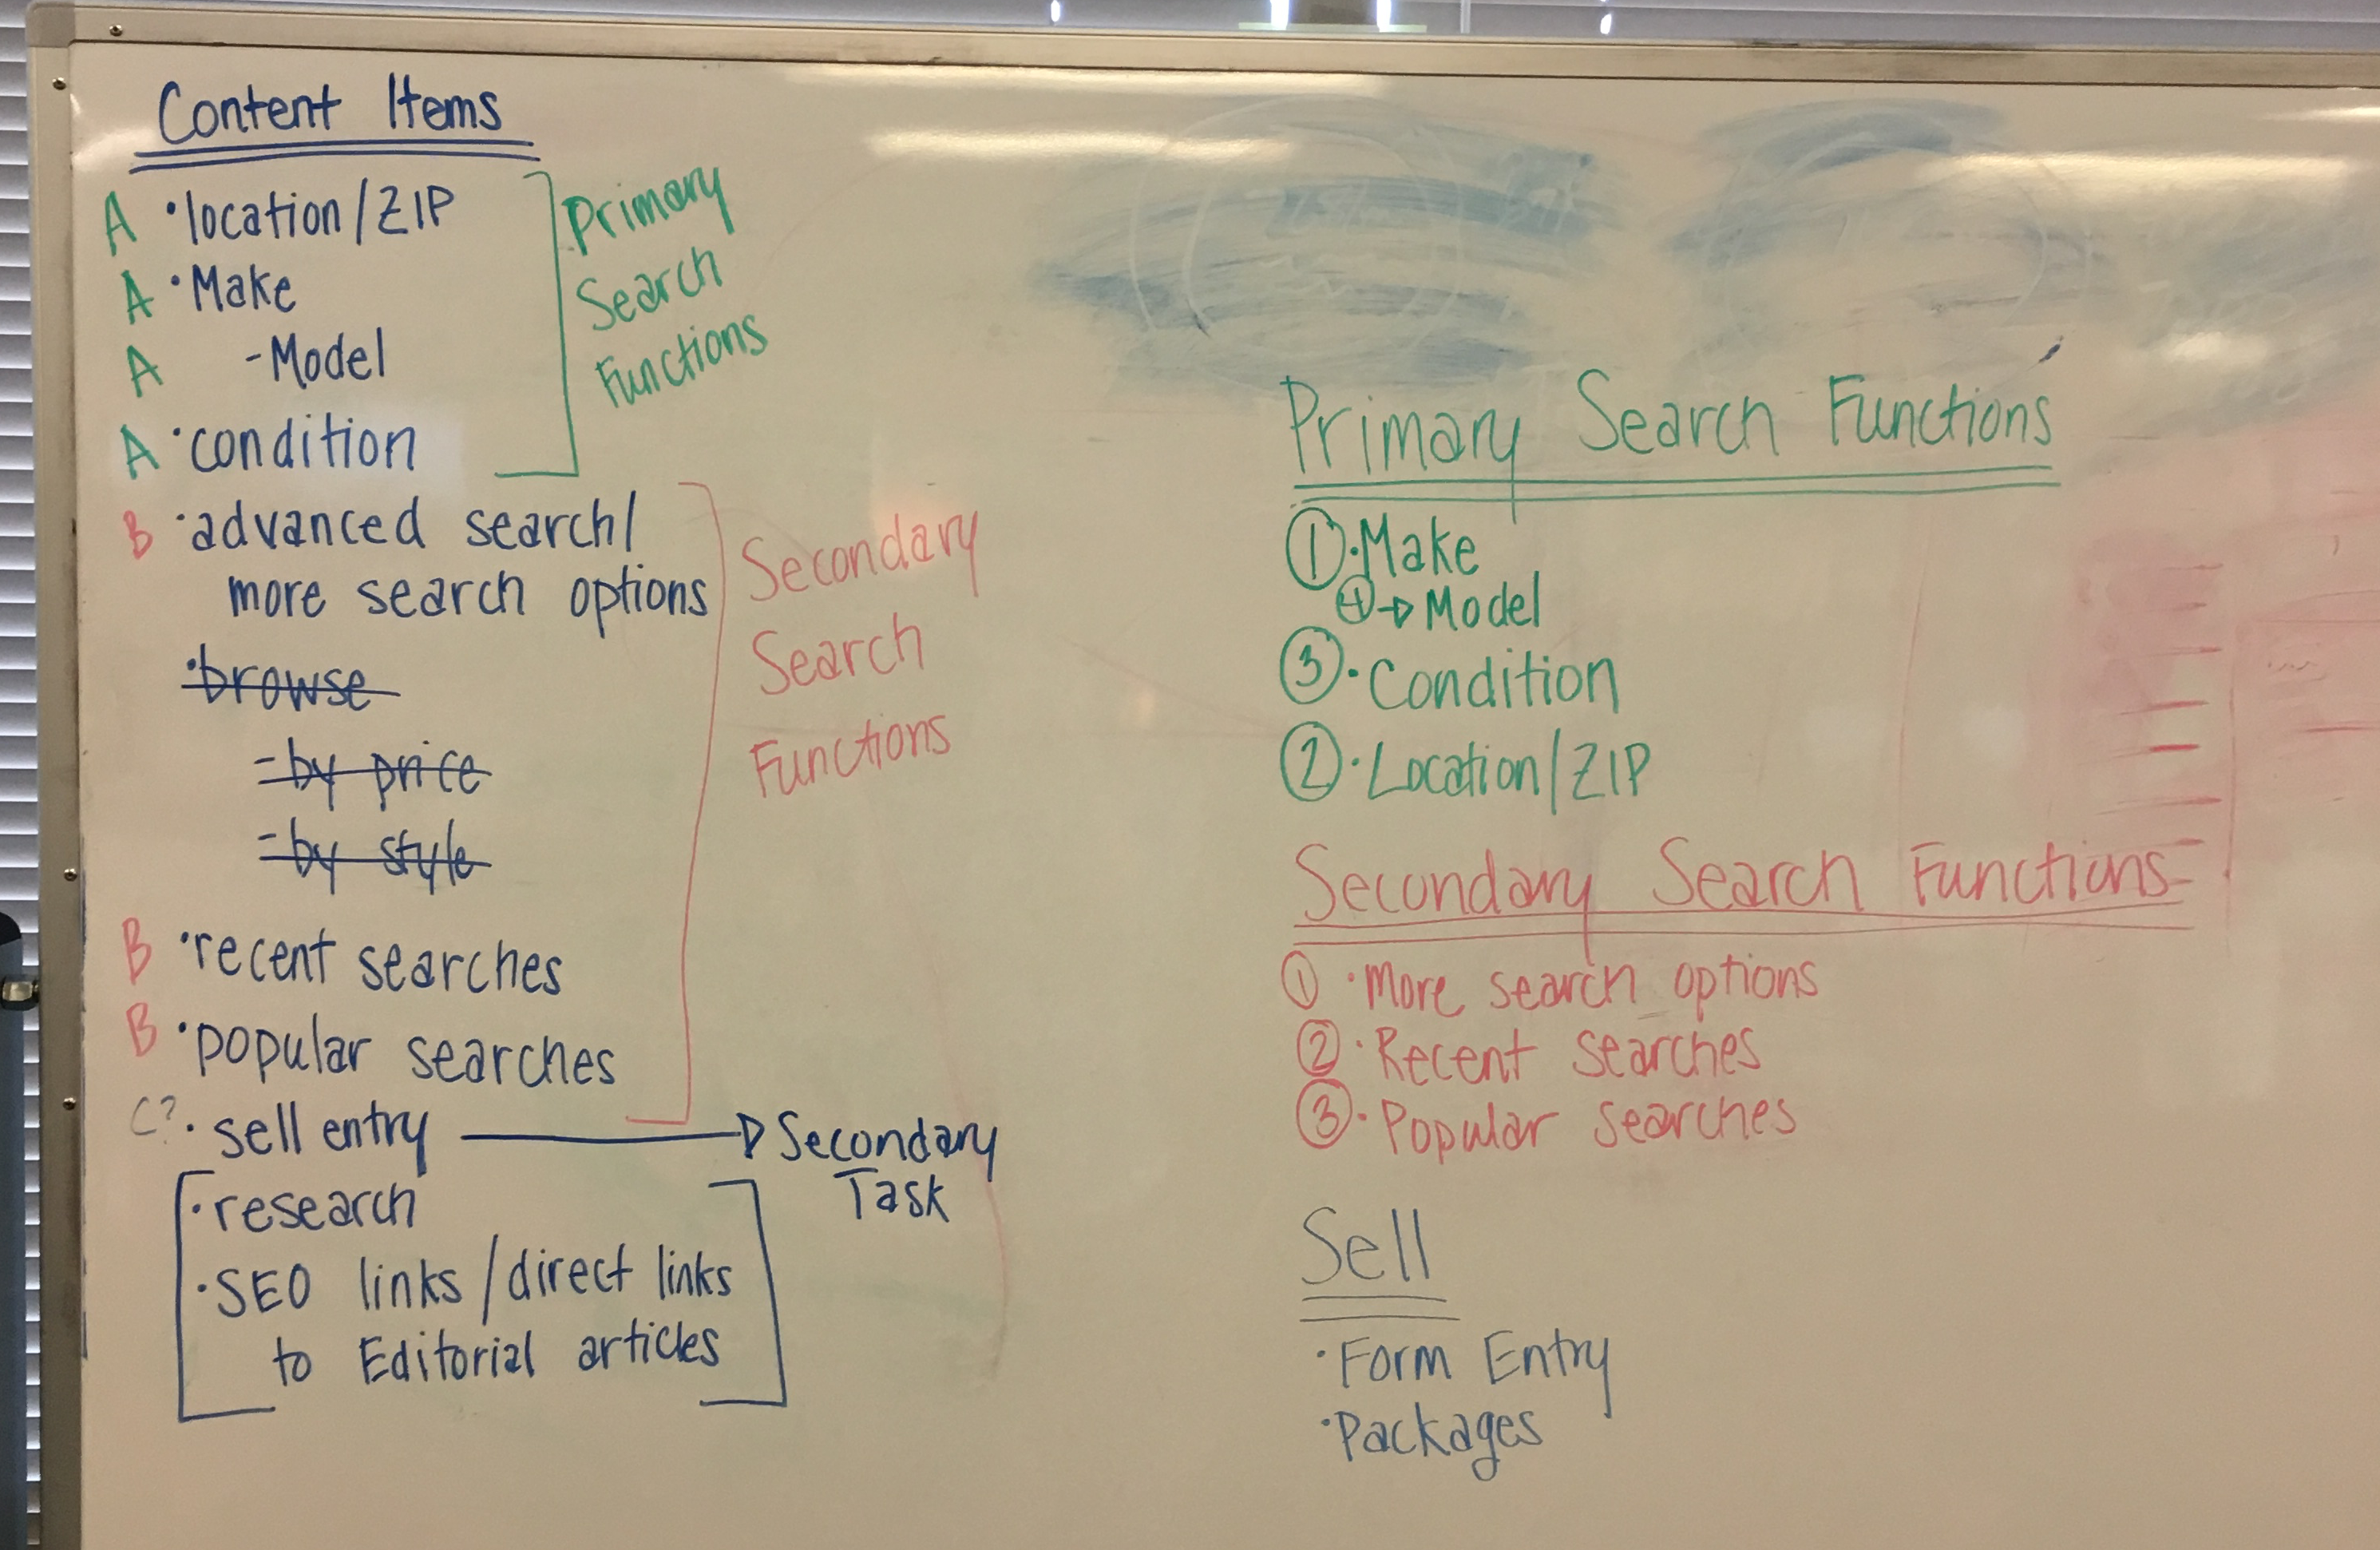 Content Items
A • location/ZIP
A • Make
A - Model
A • condition
Primary
Search
Functions
B • advanced search/
more search options
• browse
- by price
- by style
B • recent searches
B • popular searches
Secondary
Search
Functions
C? • sell entry → Secondary
Task
• research
• SEO links/direct links
to Editorial articles
Primary Search Functions
① • Make
④ → Model
③ • Condition
② • Location/ZIP
Secondary Search Functions
① • More search options
② • Recent searches
③ • Popular searches
Sell
• Form Entry
• Packages